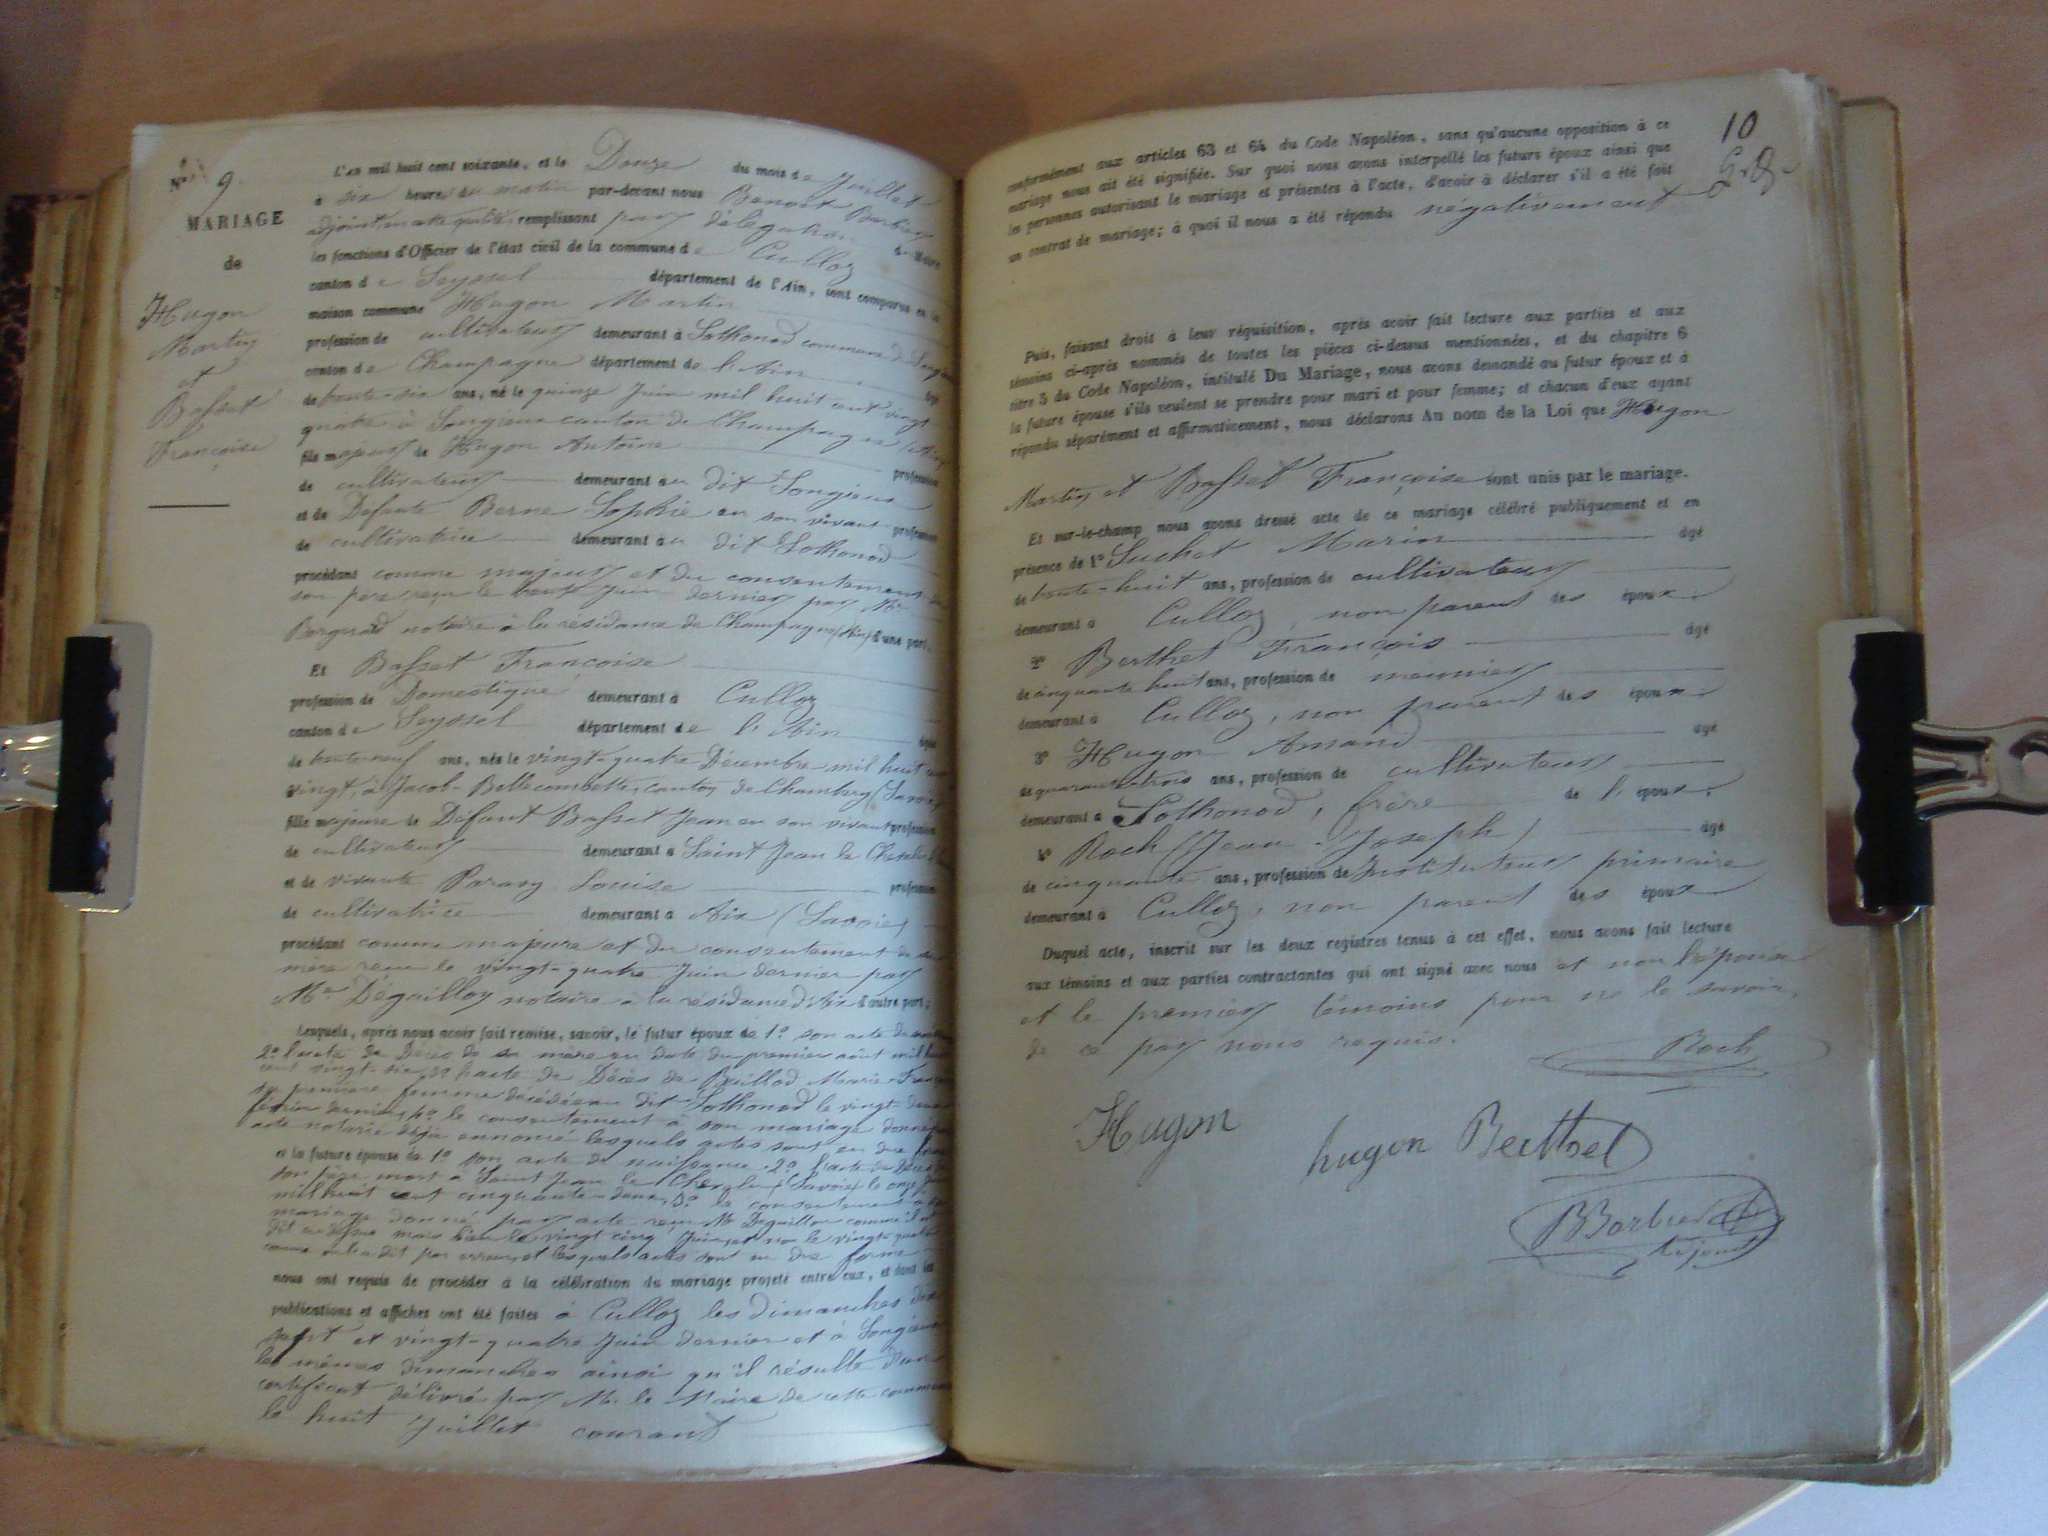 N° 9.
MARIAGE
de
Hugon
Martin
et
Basset
Françoise
L'an mil huit cent soixante, et le Douze du mois de Juillet
à six heures du matin par-devant nous Benoit Barbier
adjoint remplissant par délégation
les fonctions d'Officier de l'état civil de la commune de Culloz
canton de Seyssel département de l'Ain, sont comparus en la
maison commune Hugon Martin
profession de cultivateur demeurant à Lothonod commune de Songieu
canton de Champagne département de l'Ain âgé
de trente-six ans, né le quinze Juin mil huit cent vingt
quatre à Songieux canton de Champagne
fils majeur de Hugon Antoine profession
de cultivateur demeurant au dit Songieux
et de Défunte Berne Sophie en son vivant profession
de cultivatrice demeurant au dit Lothonod
procédant comme majeur et du consentement de
son père reçu le trente Juin dernier par Me
Borgnard notaire à la résidance de Champagne (Ain) d'une part.
Et Basset Françoise
profession de Domestique demeurant à Culloz
canton de Seyssel département de l'Ain âgée
de trente-neuf ans, née le vingt-quatre Décembre mil huit cent
vingt, à Jacob-Bellecombette, canton de Chambery (Savoie)
fille majeure de Défunt Basset Jean en son vivant profession
de cultivateur demeurant à Saint Jean le Chevelu
et de vivante Paravy Louise profession
de cultivatrice demeurant à Aix (Savoie)
procédant comme majeure et du consentement de sa
mère reçu le vingt-quatre Juin dernier par
Me Dégaillon notaire à la résidance d'Aix d'autre part;
Lesquels, après nous avoir fait remise, savoir, le futur époux de 1° son acte de
2° l'acte de Décès de sa mère en date du premier août mil huit
cent vingt-six, 3° l'acte de Décès de Buillod Marie
sa première femme décédée au dit Lothonod le vingt-deux
février dernier, 4° le consentement à son mariage donné par
acte notarié déjà énnoncé lesquels actes sont en due forme
et la future épouse de 1° son acte de naissance, 2° l'acte de Décès de
son père mort à Saint Jean le Chevelu (Savoie) le onze
mil huit cent cinquante-deux, 3° le consentement à son
mariage donné par acte reçu Me Déguillon comme il est
dit ci-dessus mais bien le vingt cinq Juin et non le vingt-quatre
comme on l'a dit par erreur, et lesquels actes sont en due forme
nous ont requis de procéder à la célébration du mariage projeté entre eux, et dont les
publications et affiches ont été faites à Culloz les dimanches dix
sept et vingt-quatre Juin dernier et à Songieux
les mêmes dimanches ainsi qu'il résulte d'un
certificat délivré par Mr le Maire de cette commune
le huit Juillet courant
10
conformément aux articles 63 et 64 du Code Napoléon, sans qu'aucune opposition à ce
mariage nous ait été signifiée. Sur quoi nous avons interpellé les futurs époux ainsi que
les personnes autorisant le mariage et présentes à l'acte, d'avoir à déclarer s'il a été fait
un contrat de mariage; à quoi il nous a été répondu négativement
Puis, faisant droit à leur réquisition, après avoir fait lecture aux parties et aux
témoins ci-après nommés de toutes les pièces ci-dessus mentionnées, et du chapitre 6
titre 5 du Code Napoléon, intitulé Du Mariage, nous avons demandé au futur époux et à
la future épouse s'ils veulent se prendre pour mari et pour femme; et chacun d'eux ayant
répondu séparément et affirmativement, nous déclarons Au nom de la Loi que Hugon
Martin et Basset Françoise sont unis par le mariage.
Et sur-le-champ nous avons dressé acte de ce mariage célébré publiquement et en
présence de 1° Suchet Marin âgé
de trente-huit ans, profession de cultivateur
demeurant à Culloz, non parent des époux.
2° Berthet François âgé
de cinquante huit ans, profession de meunier
demeurant à Culloz, non parent des époux
3° Hugon Amand âgé
de quarante-trois ans, profession de cultivateur
demeurant à Lothonod, frère de l'époux.
4° Roch (Jean-Joseph) âgé
de cinquante ans, profession de Instituteur primaire
demeurant à Culloz, non parent des époux
Duquel acte, inscrit sur les deux registres tenus à cet effet, nous avons fait lecture
aux témoins et aux parties contractantes qui ont signé avec nous et non l'épouse
et le premier témoins pour ne le savoir,
de ce par nous requis.
Roch
Hugon
hugon Berthet
BBarbier
adjoint